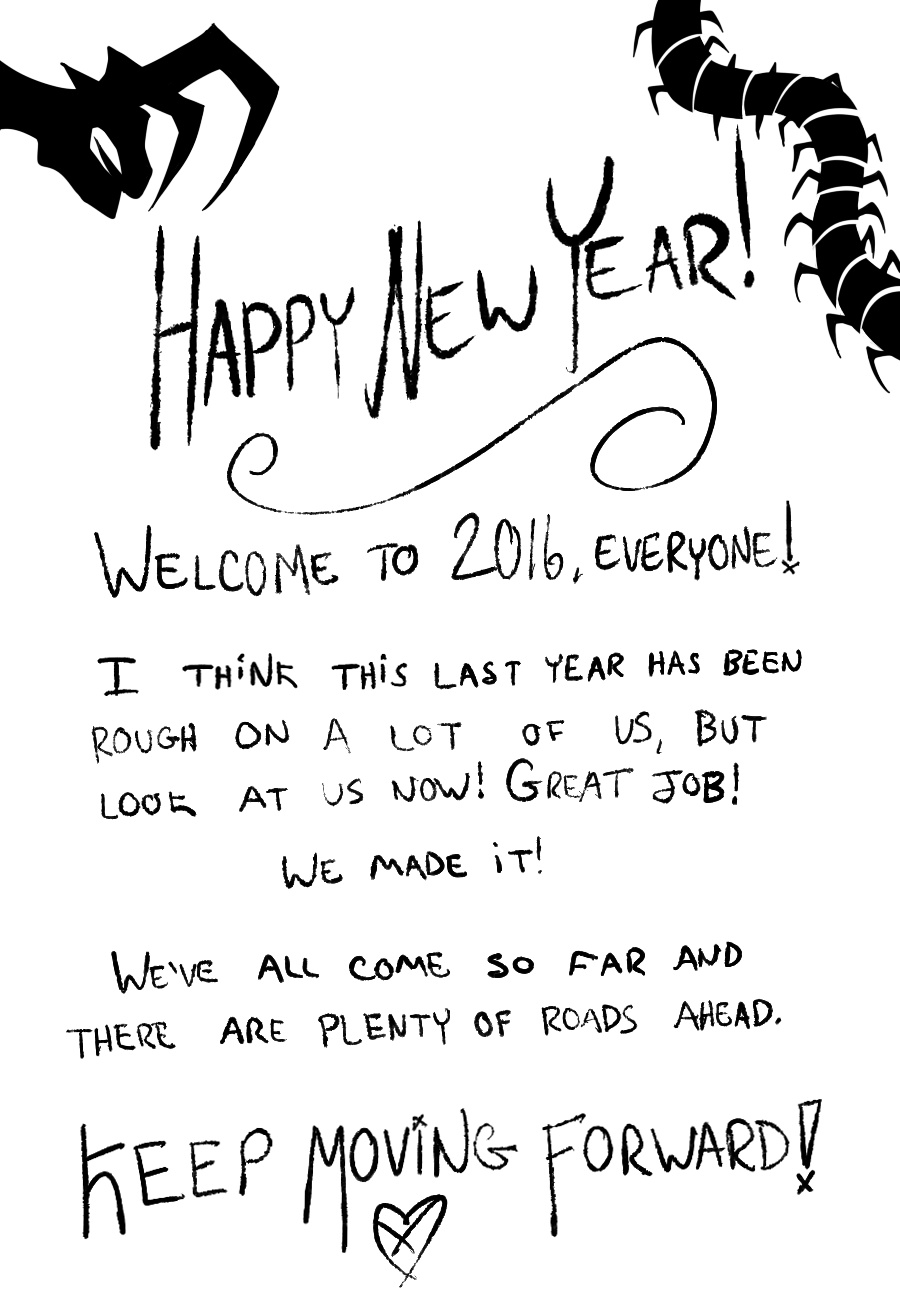 Happy New Year!
Welcome to 2016, everyone!
I think this last year has been
rough on a lot of us, but
look at us now! Great job!
We made it!
We've all come so far and
there are plenty of roads ahead.
Keep Moving Forward!